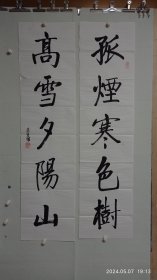 孤煙寒色樹
高雪夕陽山
2024.05.07 19:13